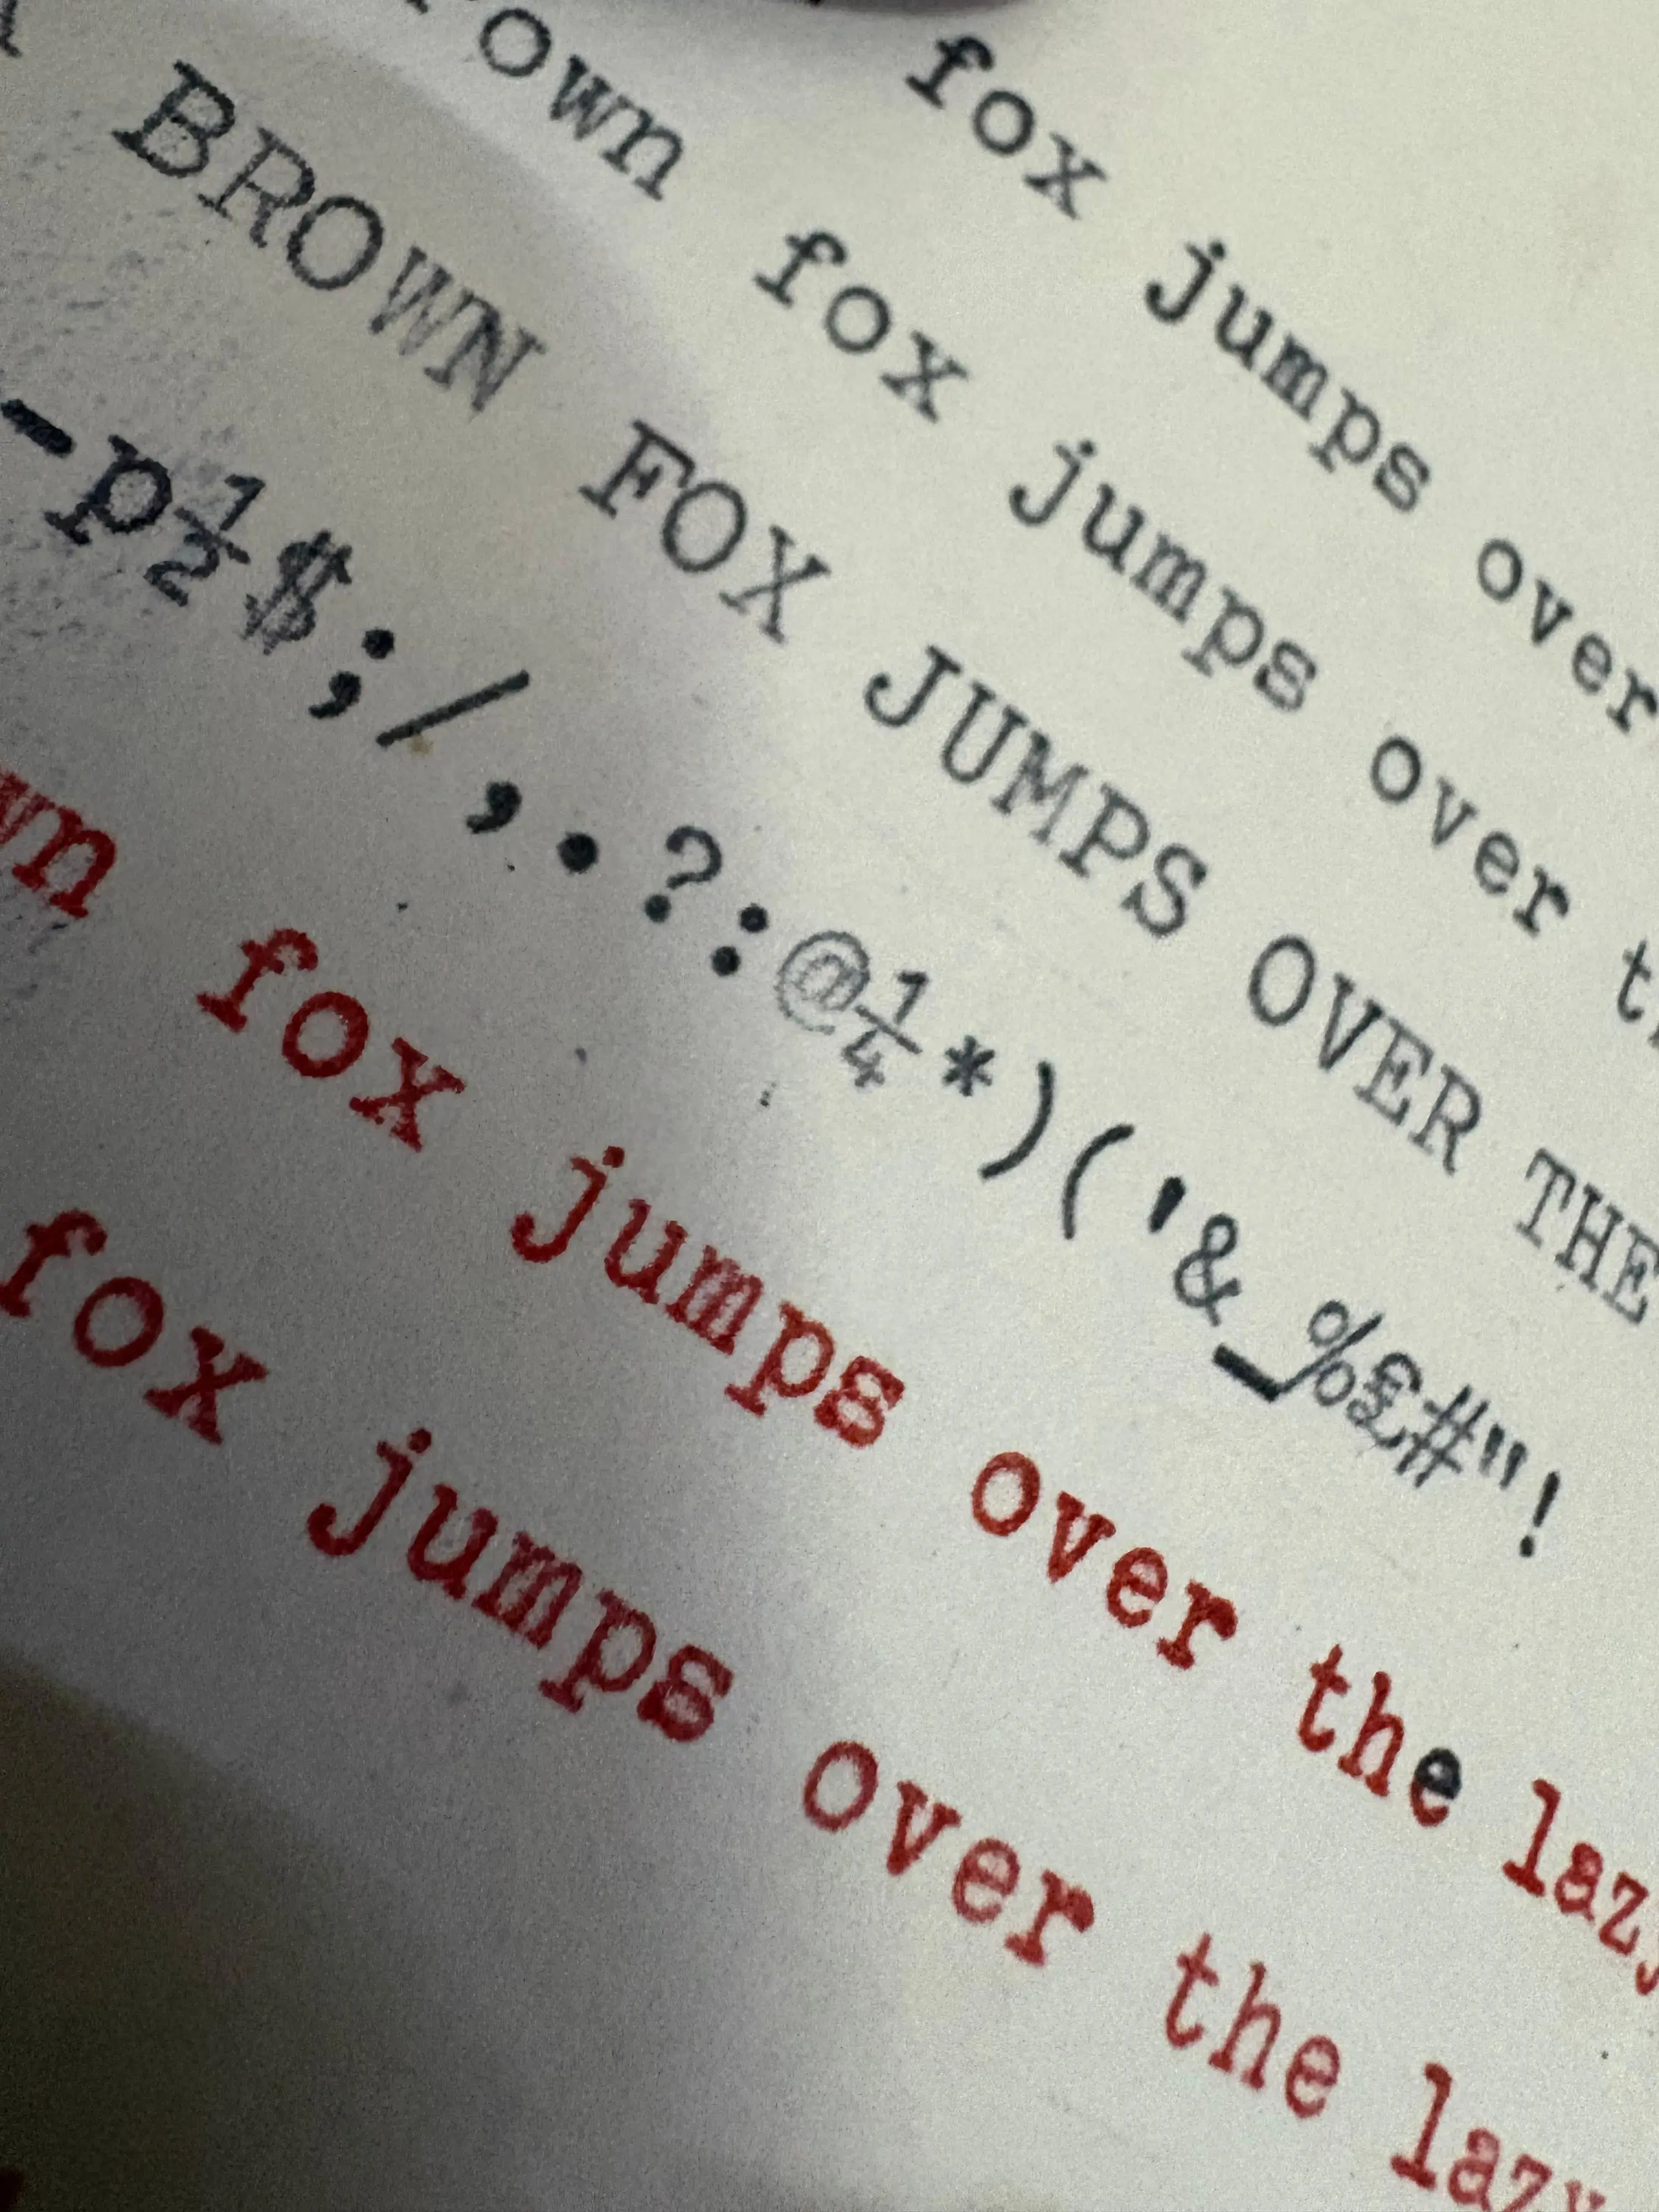 fox jumps over
own fox jumps over
BROWN FOX JUMPS OVER THE
-p½$;/,.?:@¼*)('&_%£#"!
wn fox jumps over the lazy
fox jumps over the lazy